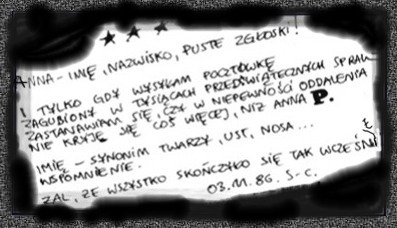 ★ ★ ★
ANNA – IMIĘ, NAZWISKO, PUSTE ZGŁOSKI!
I TYLKO GDY WYSYŁAM POCZTÓWKĘ
ZAGUBIONY W TYSIĄCACH PRZEDŚWIĄTECZNYCH SPRAW
ZASTANAWIAM SIĘ, CZY W NIEPEWNOŚCI ODDALENIA
NIE KRYJE SIĘ COŚ WIĘCEJ, NIŻ ANNA P.
IMIĘ – SYNONIM TWARZY, UST, NOSA...
WSPOMNIENIE.
ŻAL, ŻE WSZYSTKO SKOŃCZYŁO SIĘ TAK WCZEŚNIE
03.11.86. S-C.